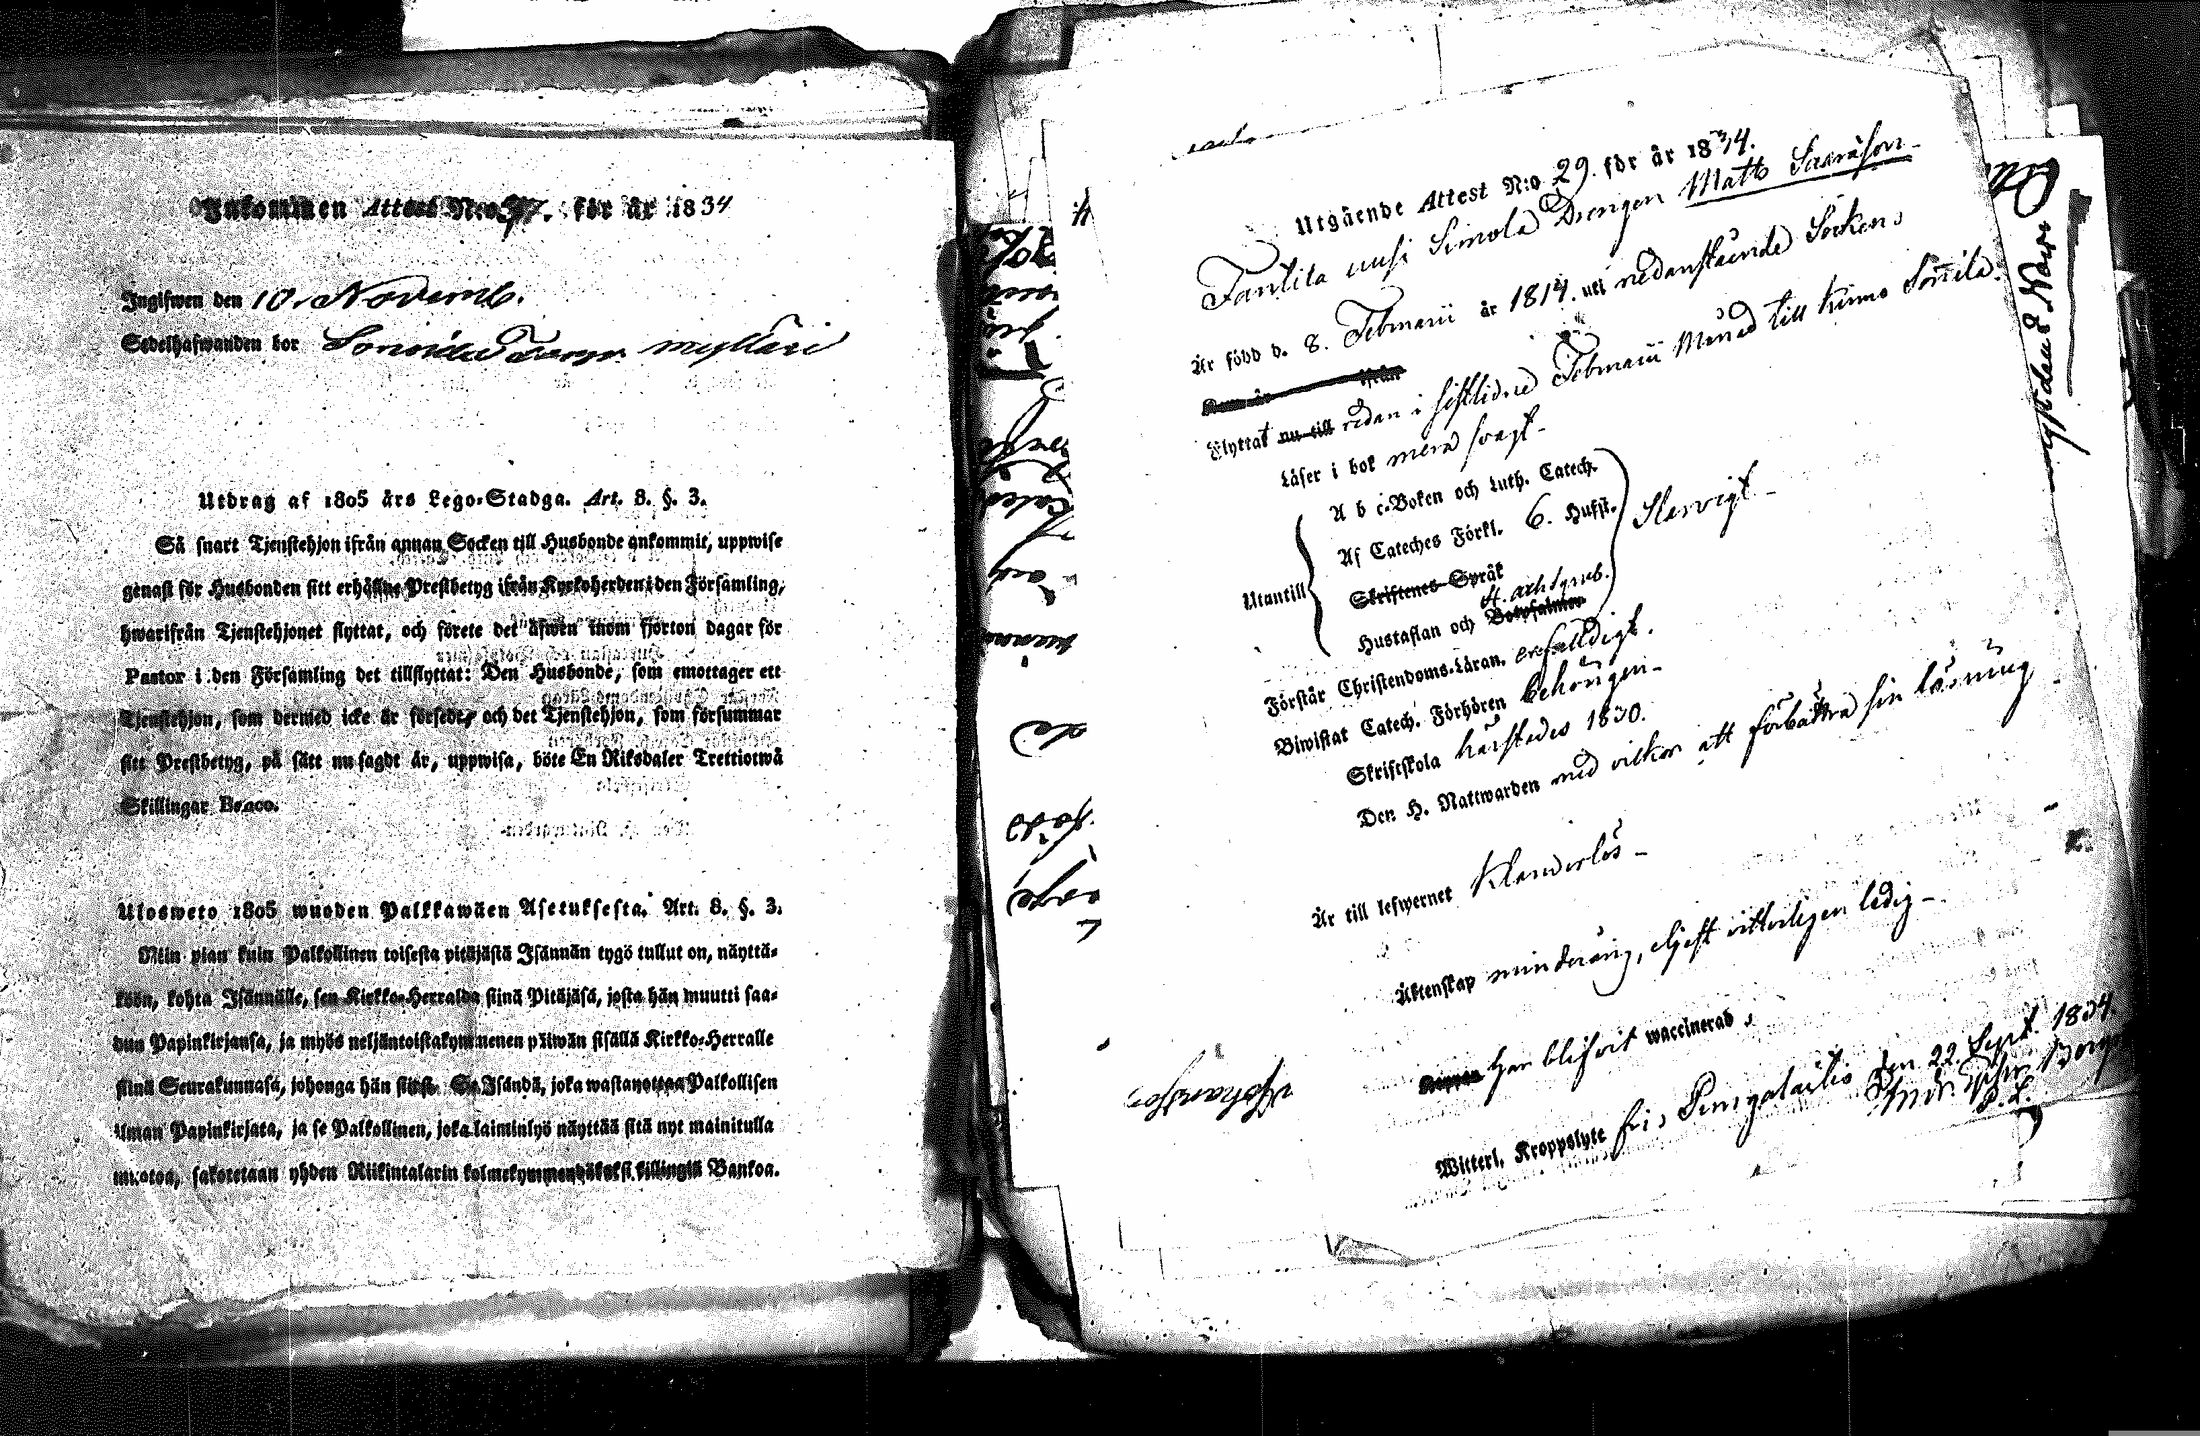 Inkommen Attest N:o 37. för år 1834
Ingifwen den 10. Novemb.
Sedelhafwanden bor Sonnila Torpr. mylläri
Utdrag af 1805 års Lego-Stadga. Art. 8. §. 3.
Så snart Tjenstehjon ifrån annan Socken till Husbonde ankommit, uppwise
genast för Husbonden sitt erhållne Prestbetyg ifrån Kyrkoherden i den Församling,
hwarifrån Tjenstehjonet flyttat, och förete det äfwen inom fjorton dagar för
Pastor i den Församling det tillflyttat: Den Husbonde, som emottager ett
Tjenstehjon, som dermed icke är försedt, och det Tjenstehjon, som försummar
sitt Prestbetyg, på sätt nu sagdt är, uppwisa, böte En Riksdaler Trettiotwå
Skillingar Banco.
Ulosweto 1805 wuoden Palkkawäen Asetuksesta. Art. 8. §. 3.
Niin pian kuin Palkollinen toisesta pitäjästä Isännän tygö tullut on, näyttä-
köön, kohta Isännälle, sen Kirkko-Herralda siinä Pitäjäsä, josta hän muutti saa-
dun Papinkirjansa, ja myös neljäntoistakymmenen päiwän sisällä Kirkko-Herralle
siinä Seurakunnasa, johonga hän siirsi. Se Isändä, joka wastanottaa Palkollisen
ilman Papinkirjata, ja se Palkollinen, joka laiminlyö näyttää sitä nyt mainitulla
muotoa, sakotetaan yhden Riikintalarin kolmekymmendäkaksi killingiä Bankoa.
Utgående Attest N:o 29. för år 1834.
Tantila uusi Simola Drengen Matts
Är född d. 8. Februarii år 1814. uti nedanstående Socken,
ifrån
Flyttat nu till redan i sistlidne Februarii Månad till Kumo Sonnila.
Läser i bok mera svagt -
A b c-Boken och Luth. Catech.
Af Cateches Förkl. 6. Hufst.
Slarvigt -
Utantill
Skriftenes Språk
Hustaflan och Botpsalmer
Förstår Christendoms-Läran. enfaldigt.
Biwistat Catech. Förhören behörigen -
Skriftskola härstedes 1830.
Den H. Nattwarden med vilkor att förbättra sin läsning
Är till lefwernet Klanderlös -
Äktenskap minderårig, eljest vitterligen ledig -
Har blifvit waccinerad,
Witterl. Kroppslyte fri, Pungalaitio den 22. Sept. 1834.